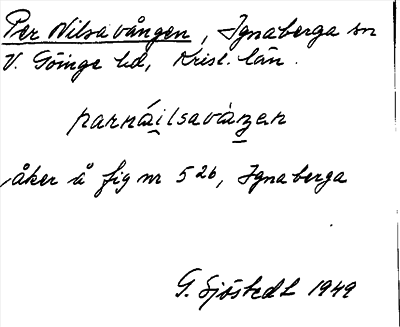 Per Nilsavången, Ignaberga sn
V. Göinge hd, Krist. län.
parnáilsavàɳen
åker å fig nr 526, Ignaberga
G. Sjöstedt 1949